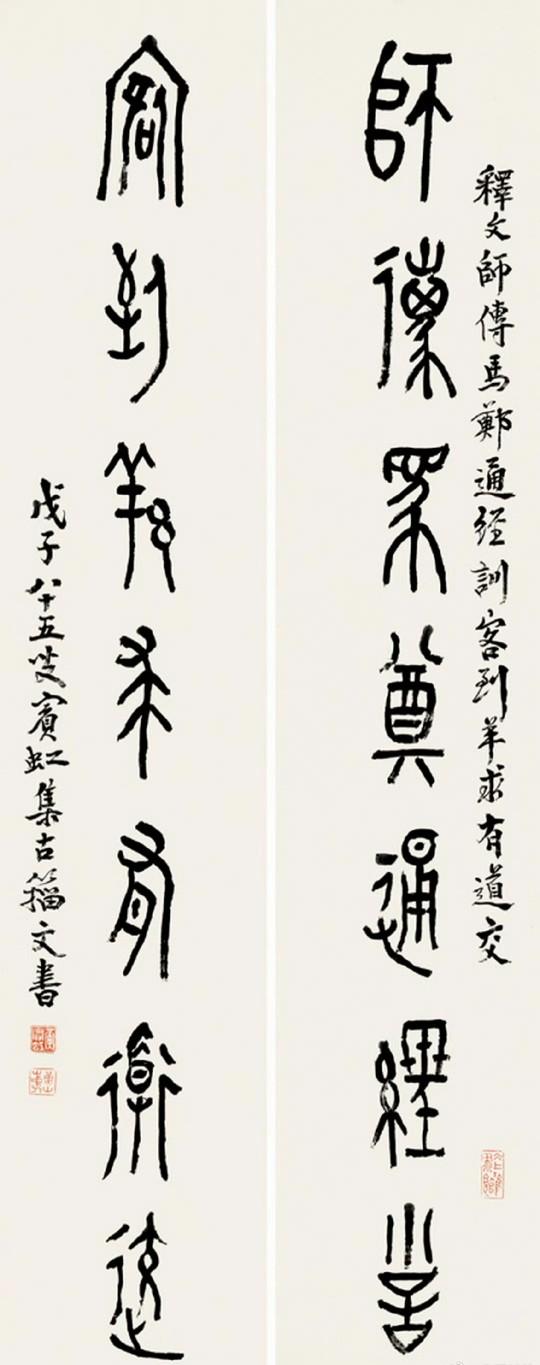 釋文師傳馬鄭通經訓客到羊求有道交
師傳馬鄭通經訓
客到羊求有道交
戊子八十五叟賓虹集古籀文書